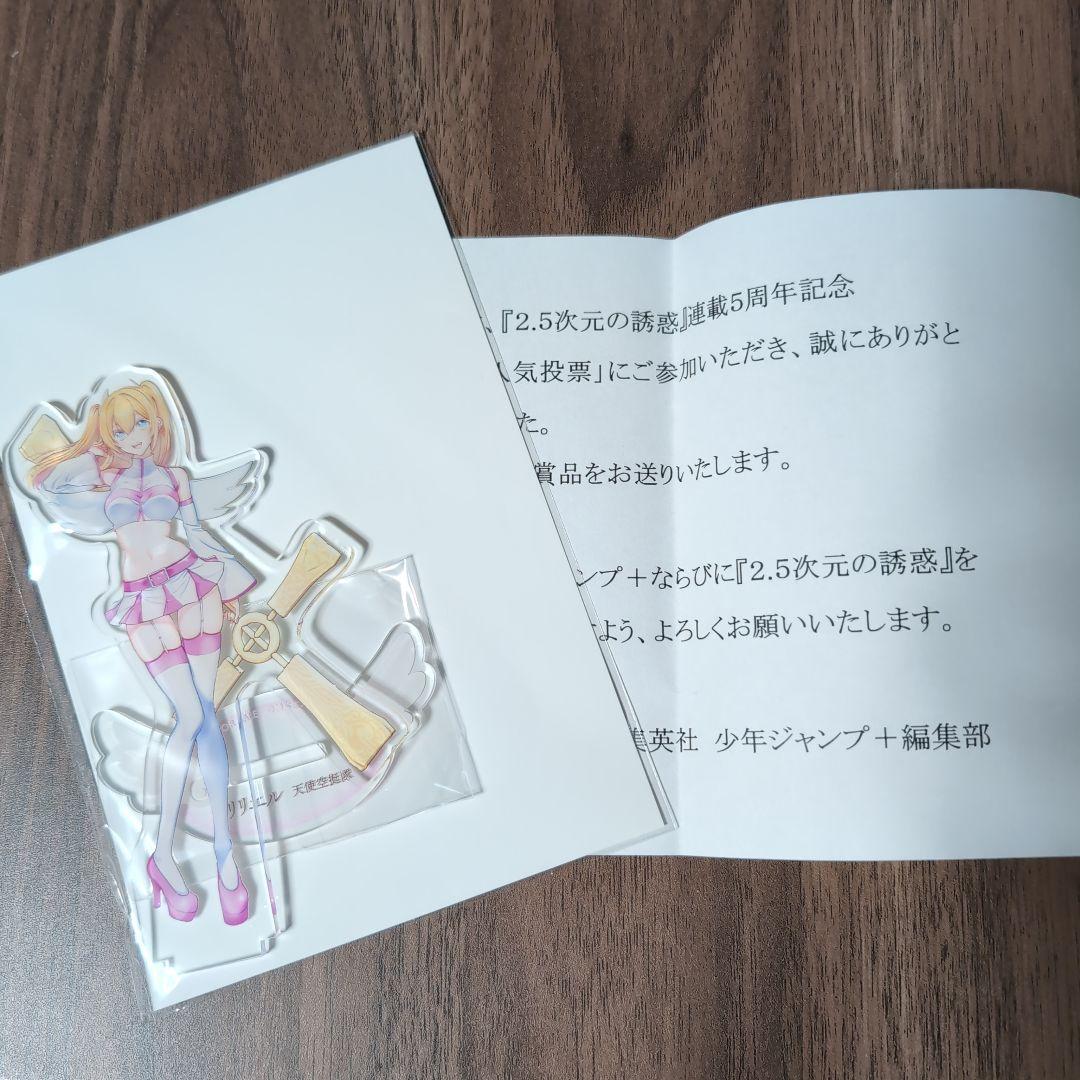 、『2.5次元の誘惑』連載5周年記念
人気投票」にご参加いただき、誠にありがと
た。
賞品をお送りいたします。
ンプ＋ならびに『2.5次元の誘惑』を
よう、よろしくお願いいたします。
集英社 少年ジャンプ＋編集部
リリエル 天使空挺隊